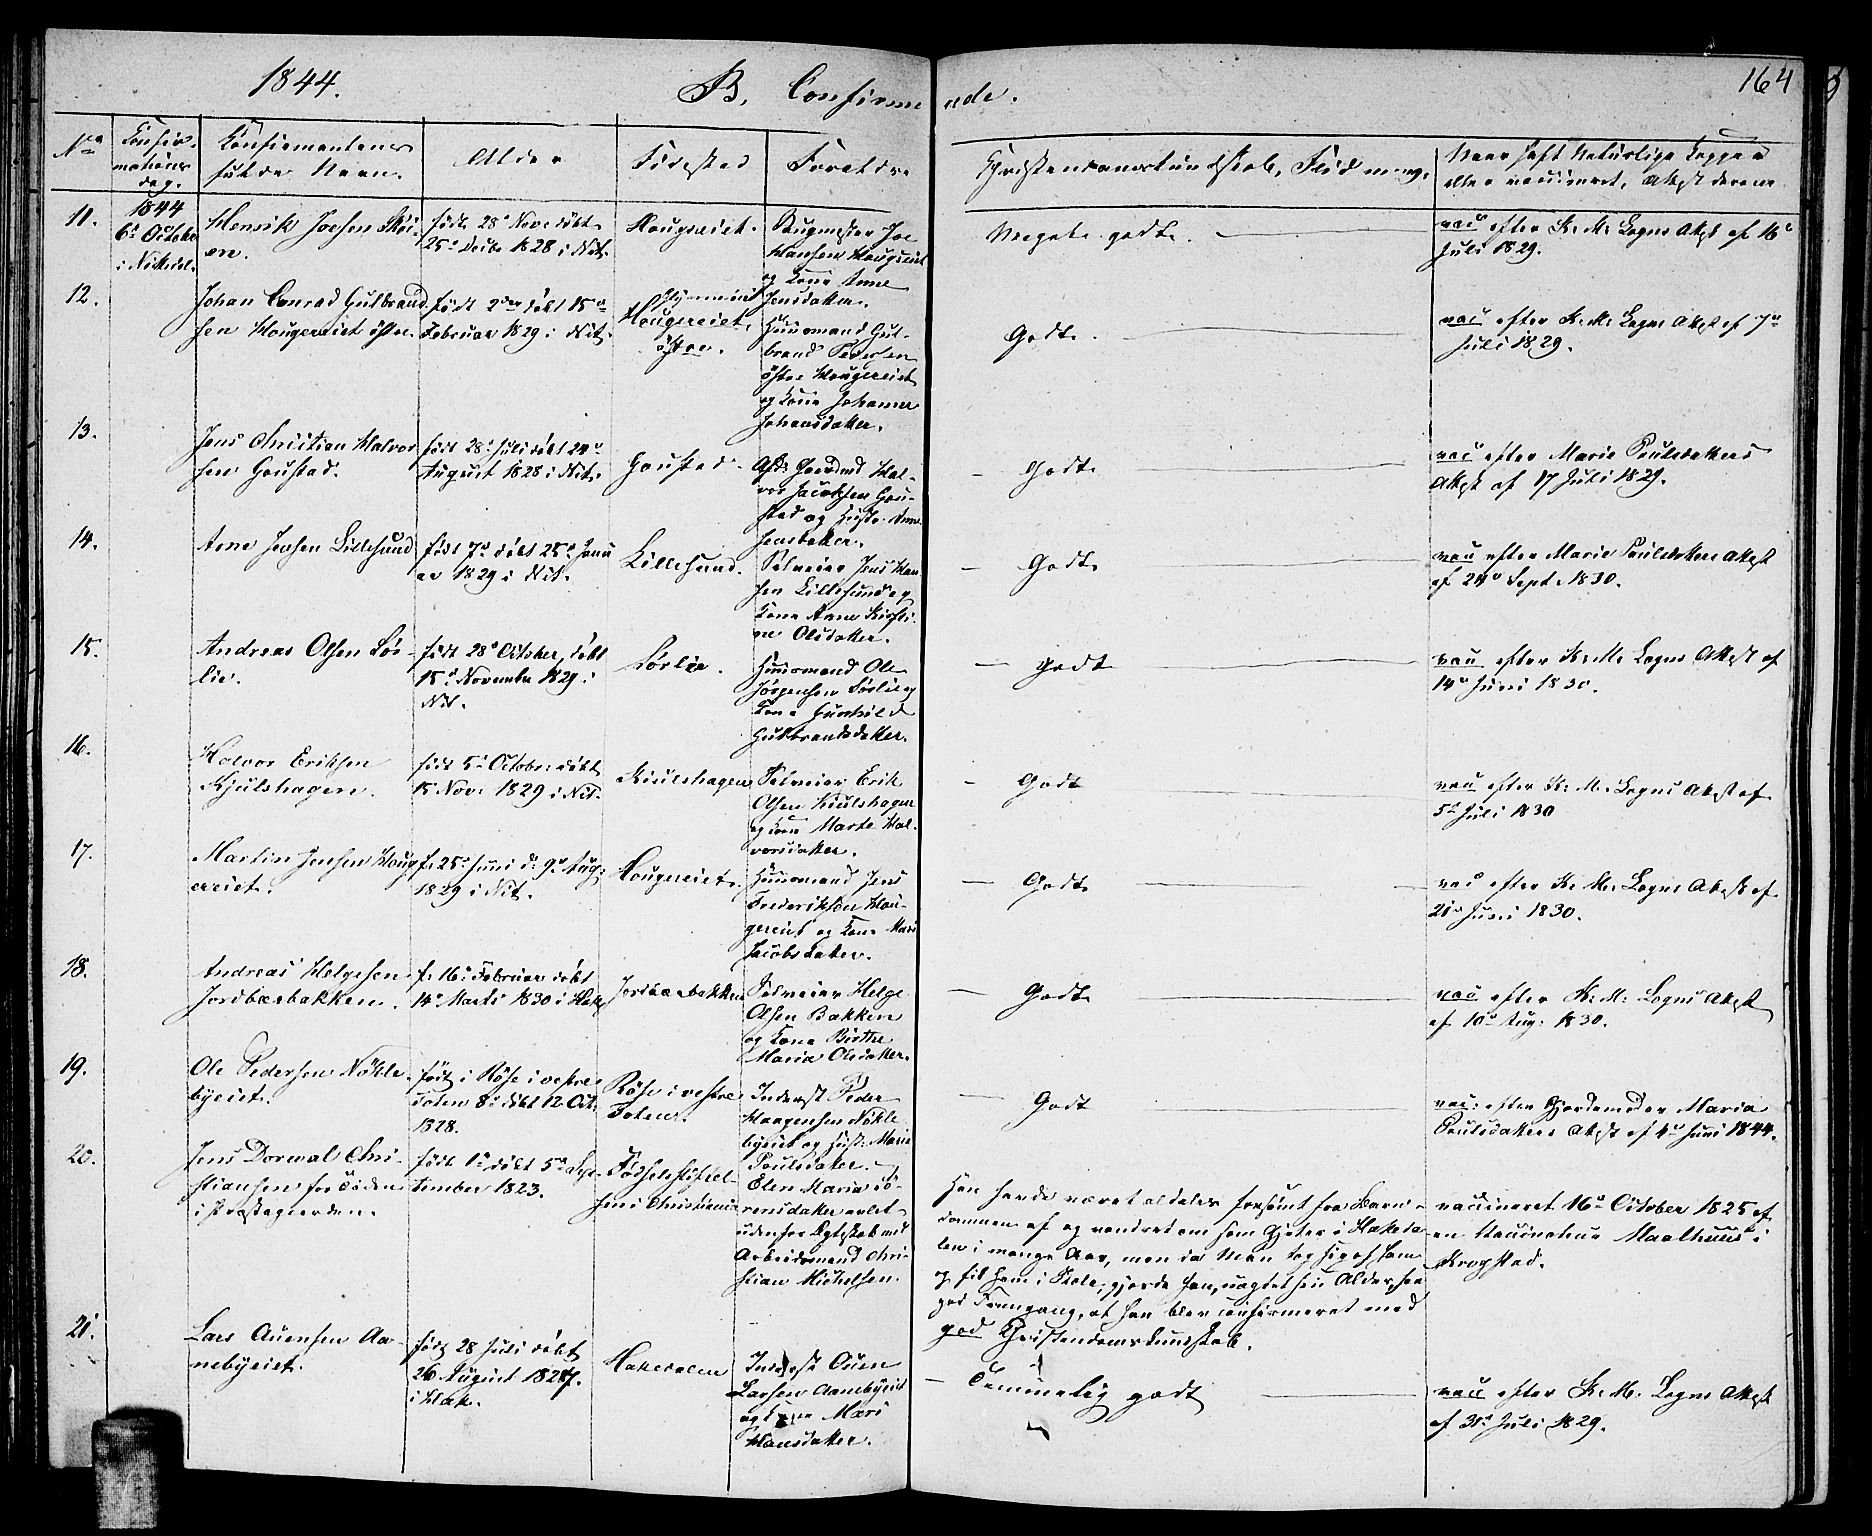 1844.
B. Confirmerede.
164
No
Confir-
mations
dag.
Confirmantens
fulde Navn.
Alder
Födested
Foreldre
Christendomskundskab, Flid m. m.
Naar havt Naturlige Kopper
eller vaccineret, Attest derom
11.
1844
6te October
i Nittedal.
Henrik Joesen Skö-
en.
födt 28de Nov: döbt
25de Decbr 1828 i Nit.
Hougereiet.
Brugmester Joe
Hansen Hougereiet
og Kone Anne
Jensdatter.
Meget godt.
vac efter K. M. Logns Attest af 16de
Juli 1829.
12.
Johan Conrad Gulbrand-
sen Hougereiet östre.
födt 2den döbt 15de
Februar 1829 i Nit.
Hougereiet,
östre.
Huusmand Gul-
brand Pedersen
östre Hougereiet
og Kone Johanne
Johansdatter.
Godt.
vac efter K. M. Logns Attest af 7de
Juli 1829.
13.
Jens Christian Halvor-
sen Goustad.
födt 28de Juli döbt 24de
August 1828 i Nit.
Goustad.
Afd: Gaardmd Hal-
vor Jacobsen Gou-
stad og Hustr. Anne
Jensdatter.
– Godt
vac efter Marie Poulsdatters
Attest af 17 Juli 1829.
14.
Arne Jensen Lillesund
födt 7de döbt 25de Janu
ar 1829 i Nit.
Lillesund.
Selveier Jens Han-
sen Lillesund og
Kone Anne Kirsti-
ne Olsdatter.
– Godt
vac efter Marie Poulsdatters Attest
af 24de Sept. 1830.
15.
Andreas Olsen Sör-
lie.
födt 28de October, döbt
15de November 1829 i
Nit.
Sörlie.
Huusmand Ole
Jörgensen Sörlie og
Kone Gunhild
Gulbrandsdatter.
– Godt
vac efter K. M. Logns Attest af
14de Juni 1830.
16.
Halvor Eriksen
Kjulshagen.
födt 5de October döbt
15 Nov: 1829 i Nit.
Kiulshagen
Selveier Erik
Olsen Kiulshagen
og Kone Marte Hal-
vorsdatter.
– Godt
vac efter K. M. Logns Attest af
5te Juli 1830
17.
Martin Jensen Houg
ereiet.
f. 25de Juni d. 9de Aug:
1829 i Nit.
Hougereiet.
Huusmand Jens
Frederiksen Hou-
gereiet og Kone Mari
Jacobsdatter.
– Godt
vac efter K. M. Logns Attest af
21de Juni 1830.
18.
Andreas Helgesen
Jordbærbakken.
f. 16de Februar döbt
14de Marts 1830 i Hak.
Jordbærbakken
Selveier Helge
Olsen Bakken
og Kone Birthe
Maria Olsdatter.
– Godt
vac efter K. M. Logns Attest
af 10de Aug: 1830.
19.
Ole Pedersen Nöhle-
byeiet.
födt i Röse i vestre
Toten 8de döbt 12 Oct:
1828.
Röse i vestre
Toten.
Inderst Peder
Haagensen Nöhle
byeiet og Hust: Marie
Poulsdatter.
– Godt
vac: efter Gjordemoder Maria
Poulsdatters Attest af 4de Juni 1844.
20.
Jens Dorwal Chri-
stiansen for Tiden
i Præstegaarden.
födt 1ste döbt 5te Sep-
tember 1823.
Födselsstiftel-
sen i Christiania
Elen Maria Sö-
rensdatter avlet
udenfor Ægteskab med
Arbeidsmand Chri-
stian Michelsen.
Han havde været aldeles forsömt fra Barn-
dommen af og vandret om som Gjeter i Hakeda-
len i mange Aar, men da Man tog sig af ham
og fik ham i Skole, gjorde han, uagtet sin Alder, saa
god Fremgang, at han blev confirmeret med
god Christendomskundskab.
vaccineret 16de October 1825 af
en Vaccinateur Maalhuus i
Krogstad.
21.
Lars Auensen Aa-
nebyeiet.
födt 28 Juli döbt
26 August 1827.
i Hak.
Hakedalen
Inderst Ouen
Larsen Aanebyeiet
og Kone Mari
Hansdatter.
– Temmelig godt
vac efter K. M. Logns Attest
af 31de Juli 1829.